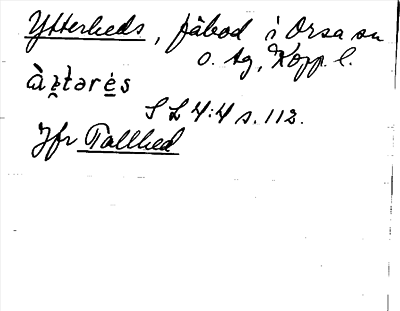 Ytterheds, fäbod i Orsa sn
o. tg, Kopp. l.
S L 4:4 s. 112.
Jfr Tallhed